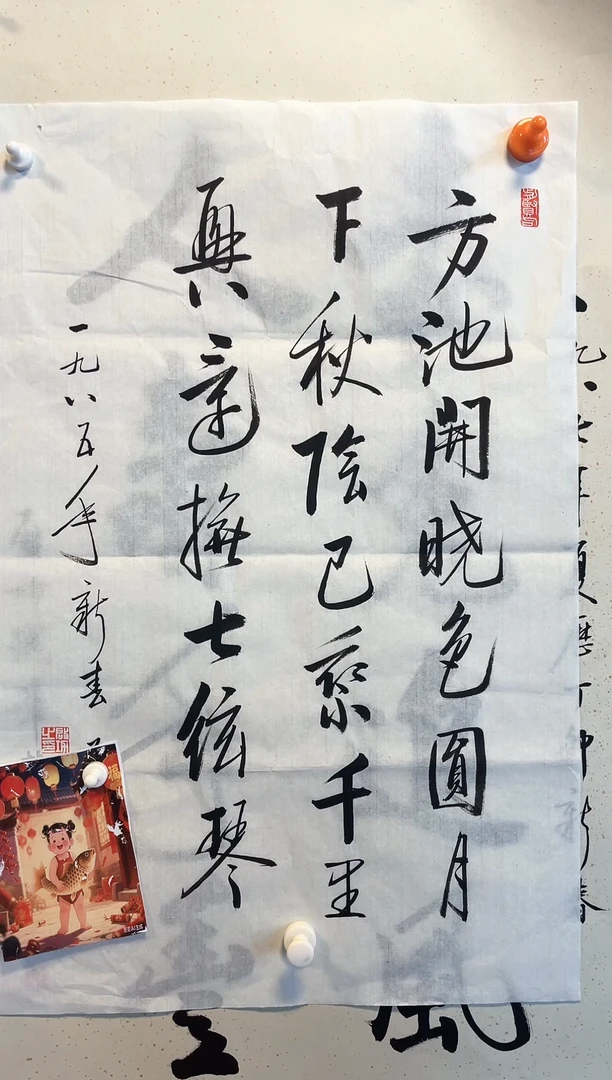 方池開晓色圓月
下秋陰已乘千里
興還撫七絃琴
一九八五年新春
風